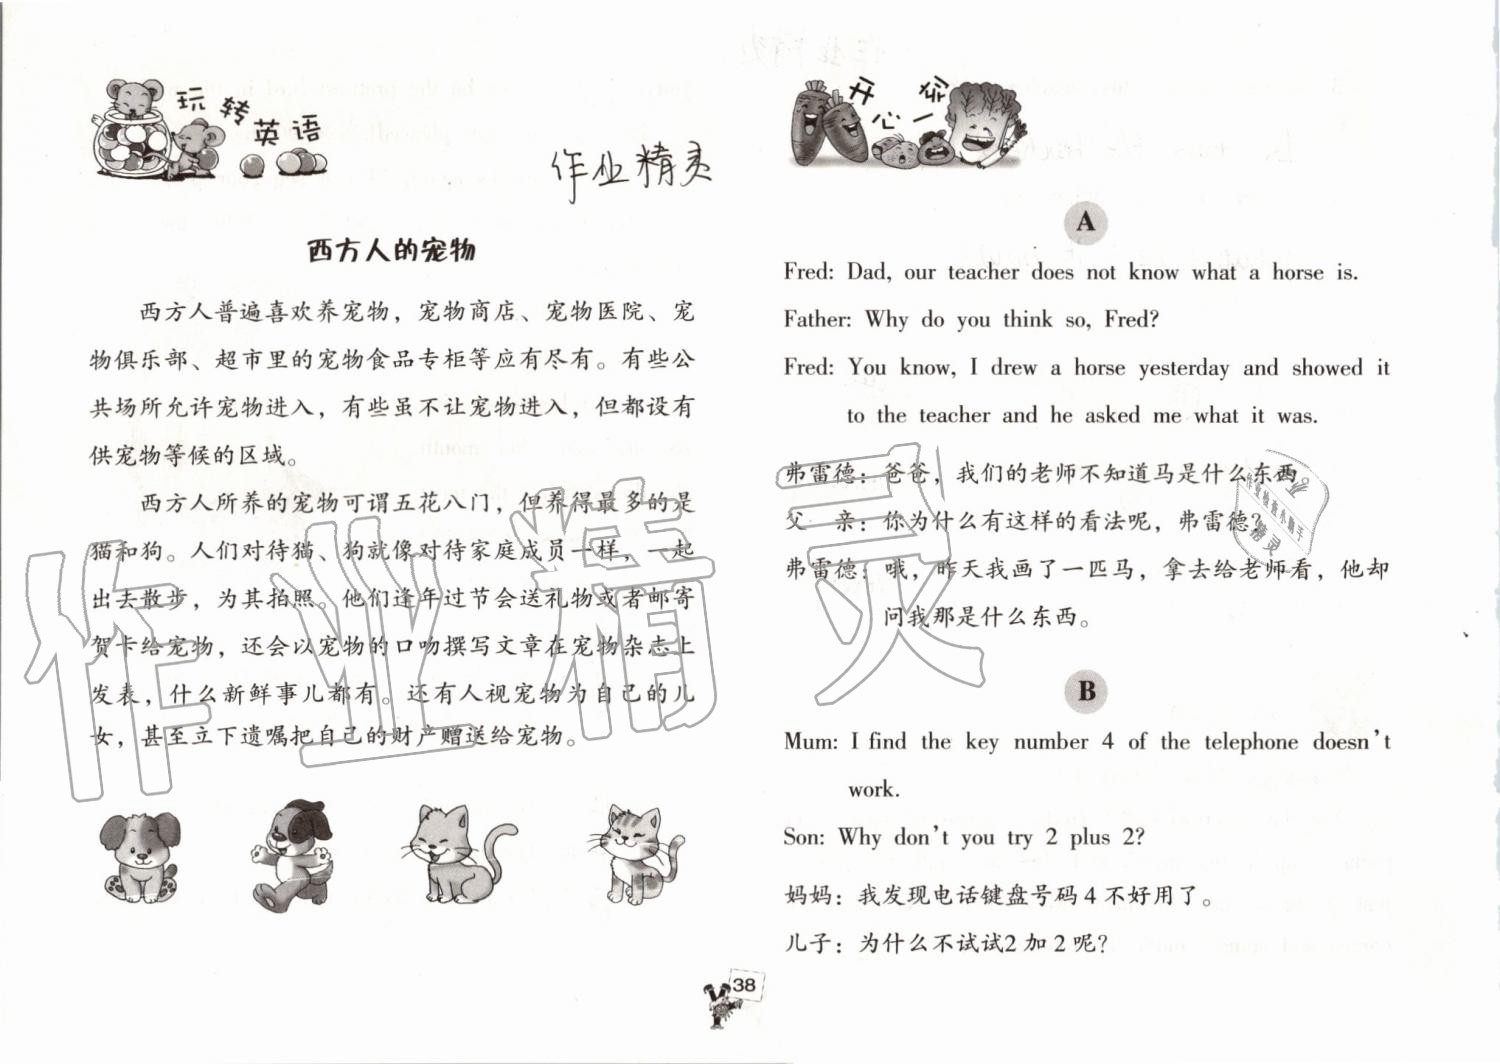 玩转英语
作业精灵
西方人的宠物
西方人普遍喜欢养宠物，宠物商店、宠物医院、宠
物俱乐部、超市里的宠物食品专柜等应有尽有。有些公
共场所允许宠物进入，有些虽不让宠物进入，但都设有
供宠物等候的区域。
西方人所养的宠物可谓五花八门，但养得最多的是
猫和狗。人们对待猫、狗就像对待家庭成员一样，一起
出去散步，为其拍照。他们逢年过节会送礼物或者邮寄
贺卡给宠物，还会以宠物的口吻撰写文章在宠物杂志上
发表，什么新鲜事儿都有。还有人视宠物为自己的儿
女，甚至立下遗嘱把自己的财产赠送给宠物。
作业精灵
38
开心一
A
Fred: Dad, our teacher does not know what a horse is.
Father: Why do you think so, Fred?
Fred: You know, I drew a horse yesterday and showed it
to the teacher and he asked me what it was.
弗雷德：爸爸，我们的老师不知道马是什么东西。
父　亲：你为什么有这样的看法呢，弗雷德？
弗雷德：哦，昨天我画了一匹马，拿去给老师看，他却
问我那是什么东西。
B
Mum: I find the key number 4 of the telephone doesn't
work.
Son: Why don't you try 2 plus 2?
妈妈：我发现电话键盘号码 4 不好用了。
儿子：为什么不试试2 加 2 呢？